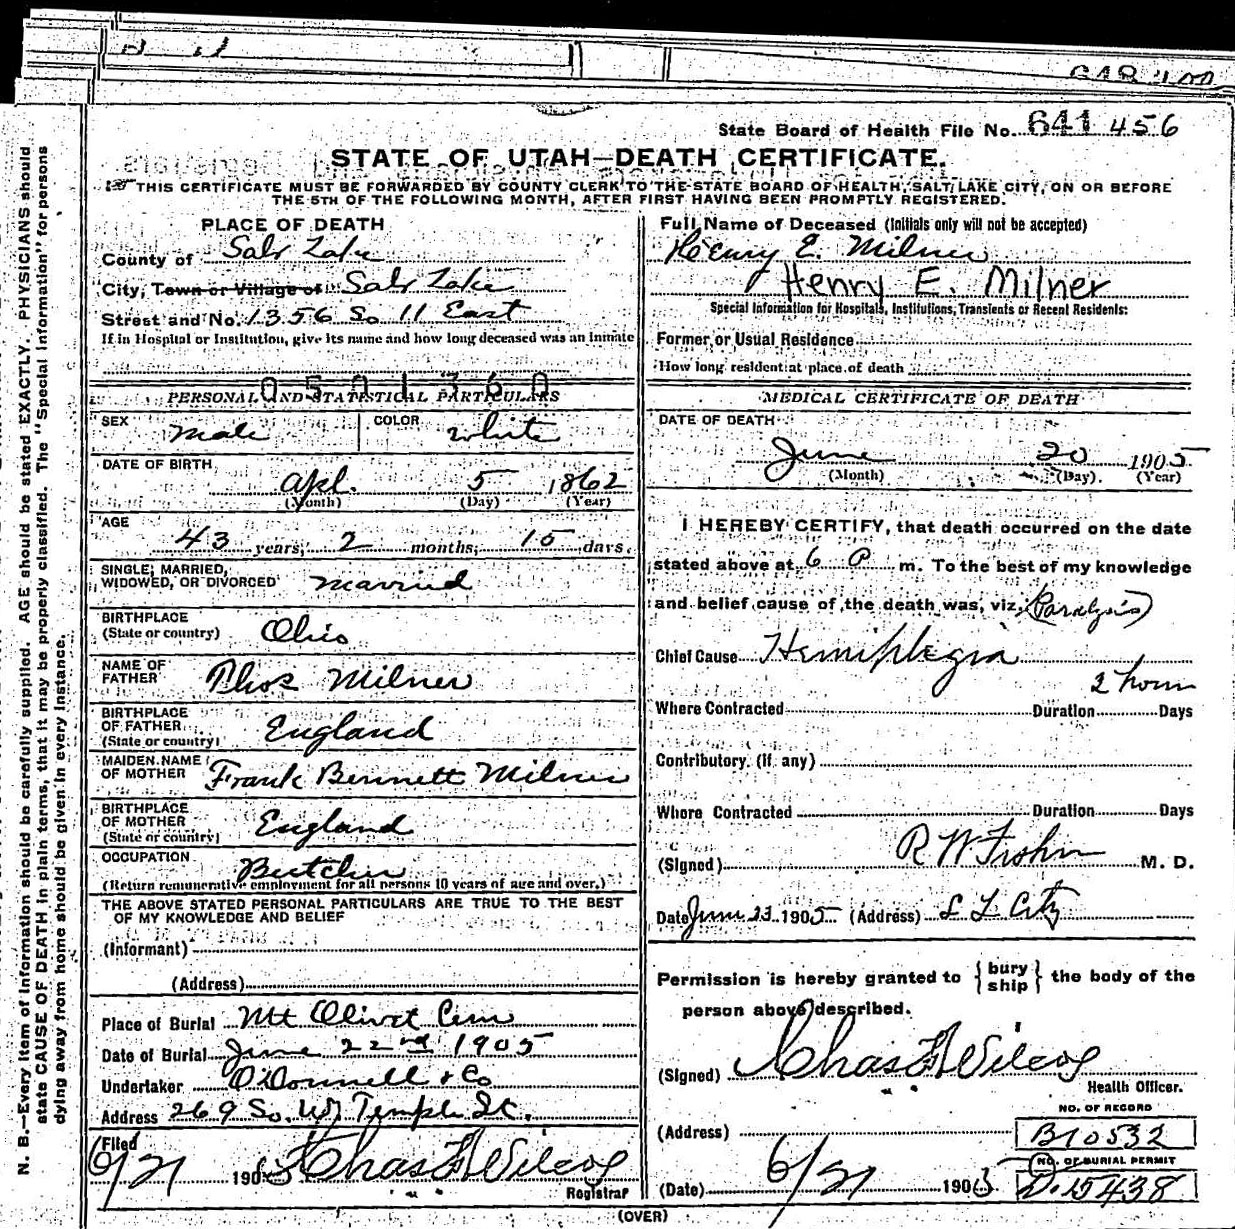 State Board of Health File No. 641 456
STATE OF UTAH—DEATH CERTIFICATE.
THIS CERTIFICATE MUST BE FORWARDED BY COUNTY CLERK TO THE STATE BOARD OF HEALTH, SALT LAKE CITY, ON OR BEFORE
THE 5TH OF THE FOLLOWING MONTH, AFTER FIRST HAVING BEEN PROMPTLY REGISTERED.
N. B.—Every item of information should be carefully supplied. AGE should be stated EXACTLY. PHYSICIANS should
state CAUSE OF DEATH in plain terms, that it may be properly classified. The "Special Information" for persons
dying away from home should be given in every instance.
PLACE OF DEATH
County of Salt Lake
City, Town or Village of Salt Lake
Street and No. 1356 So 11 East
If in Hospital or Institution, give its name and how long deceased was an inmate
0501360
PERSONAL AND STATISTICAL PARTICULARS
SEX male COLOR white
DATE OF BIRTH
Apl. 5 1862
(Month) (Day) (Year)
AGE
43 years, 2 months, 15 days.
SINGLE, MARRIED,
WIDOWED, OR DIVORCED married
BIRTHPLACE
(State or country) Ohio
NAME OF
FATHER Thos Milner
BIRTHPLACE
OF FATHER
(State or country) England
MAIDEN NAME
OF MOTHER Frank Bennett Milner
BIRTHPLACE
OF MOTHER
(State or country) England
OCCUPATION Butcher
(Return remunerative employment for all persons 10 years of age and over.)
THE ABOVE STATED PERSONAL PARTICULARS ARE TRUE TO THE BEST
OF MY KNOWLEDGE AND BELIEF
(Informant)
(Address)
Place of Burial Mt Olivet Cem
Date of Burial June 22nd 1905
Undertaker O'Donnell & Co
Address 269 So. W Temple St.
Filed
6/21 1905 Chas F Wilcox
Registrar
Full Name of Deceased (Initials only will not be accepted)
Henry E. Milner
Henry E. Milner
Special Information for Hospitals, Institutions, Transients or Recent Residents:
Former or Usual Residence
How long resident at place of death
MEDICAL CERTIFICATE OF DEATH
DATE OF DEATH
June 20 1905
(Month) (Day). (Year)
I HEREBY CERTIFY, that death occurred on the date
stated above at 6 P m. To the best of my knowledge
and belief cause of the death was, viz, (Paralysis)
Chief Cause Hemiplegia
2 hours
Where Contracted Duration Days
Contributory. (If any)
Where Contracted Duration Days
(Signed) R W M. D.
Date June 23 1905 (Address) S L City
Permission is hereby granted to {bury ship} the body of the
person above described.
(Signed) Chas F Wilcox
Health Officer.
(Address)
NO. OF RECORD
B10532
NO. OF BURIAL PERMIT
D.15438
(Date) 6/21 1905
(OVER)